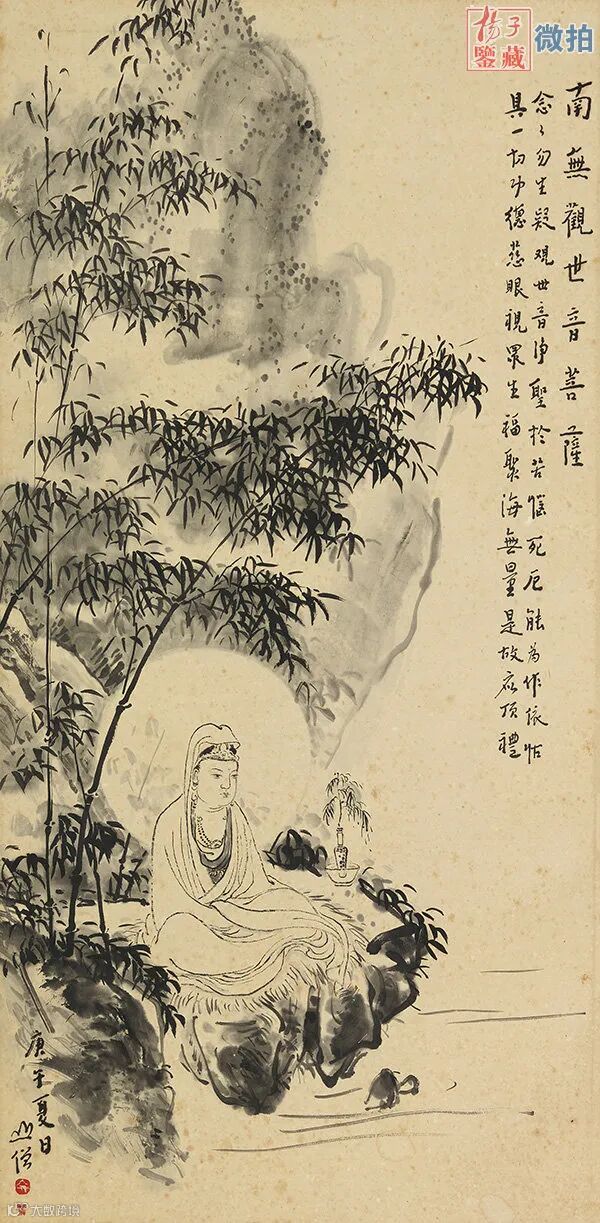 揚子
鑒藏
微拍
南無觀世音菩薩
念〻勿生疑觀世音淨聖於苦惱死厄能為作依怙
具一切功德慈眼視眾生福聚海無量是故应頂禮
庚午夏日
山僧
大数跨境